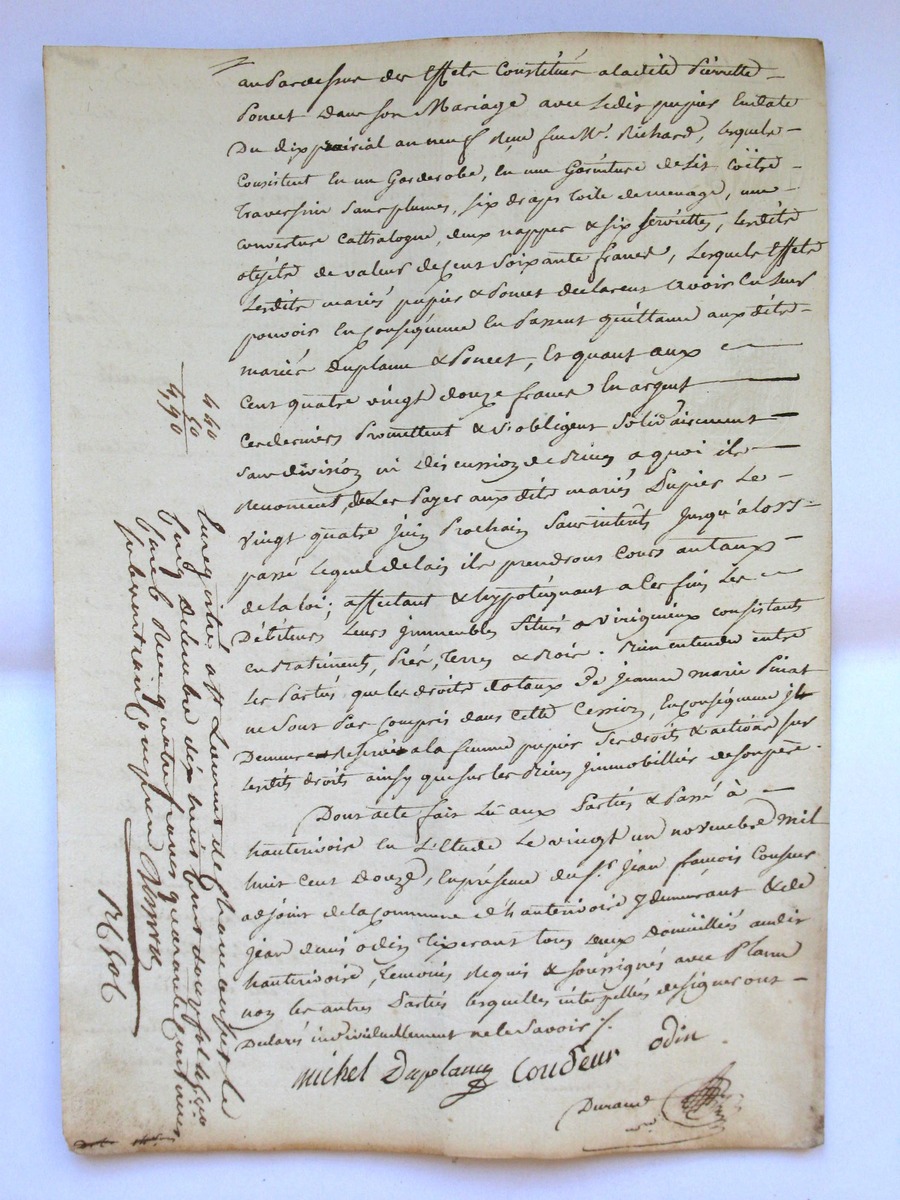 au Par dessus des Effets Constitués a ladite Pierrette
Poncet dans son Mariage avec Ledit pupier En date
Du dix prairial an neuf Reçu feu Mr. Richard, lesquels
Consistent En un Garderobe, En une Garniture de Lit Coître
Traversin Sans plumes, six draps toile de menage, une
couverture Cathalogne, deux nappes & six serviettes, lesdits
objets de valeur de Cent Soixante francs, Lesquels Effets
Lesdits mariés pupier & Poncet declarent avoir En leur
pouvoir En Conséquence En Passent quittance aux dits
mariés Duplanu & Poncet, Et quant aux
Cent quatre vingt douze francs En argent
Ces derniers Promettent & s'obligent Solidairement
Sans division ni discussion de Biens a quoi ils
Renoncent, de Les Payer aux dits mariés Pupier Le
Vingt quatre Juin Prochain Sans intérêts Jusqu'alors
passé Lequel delais ils prendrons Cours au taux
de la loi; affectant & hypotéquant a Ces fins Les
Débiteurs Leurs Immeubles Situés a Virigneux consistants
en Batiments, Prés, Terres & Bois. Bien entendu entre
les Parties que les droits dotaux de Jeanne marie Pinat
ne Sont Pas Compris dans Cette Cession, En Conséquence il
Demeure Reservé a la femme pupier Ses droits & actions sur
Lesdits droits ainsy que sur les Biens Immobillier de son père.
Dont acte fait Lû aux Parties & Passé à
hauterivoire En L'Etude Le vingt un novembre Mil
huit Cent Douze, En présence du Sr. Jean françois Couseur
adjoint de la Commune d'hauterivoire y demeurant & de
Jean denis odin Tixerant tous deux domiciliés audit
hauterivoire, Temoins Requis & Soussignés avec
non les autres Parties lesquelles interpellées de signer ont
Declarés individuellement ne le Savoir /.
Michel Duplanu Coudeur odin
Durand
440
50
490
Enregistré a St Laurent de Chamousset le
Cinq decembre dix huit Cent douze fol
Reçu quatre francs quarante
subvention